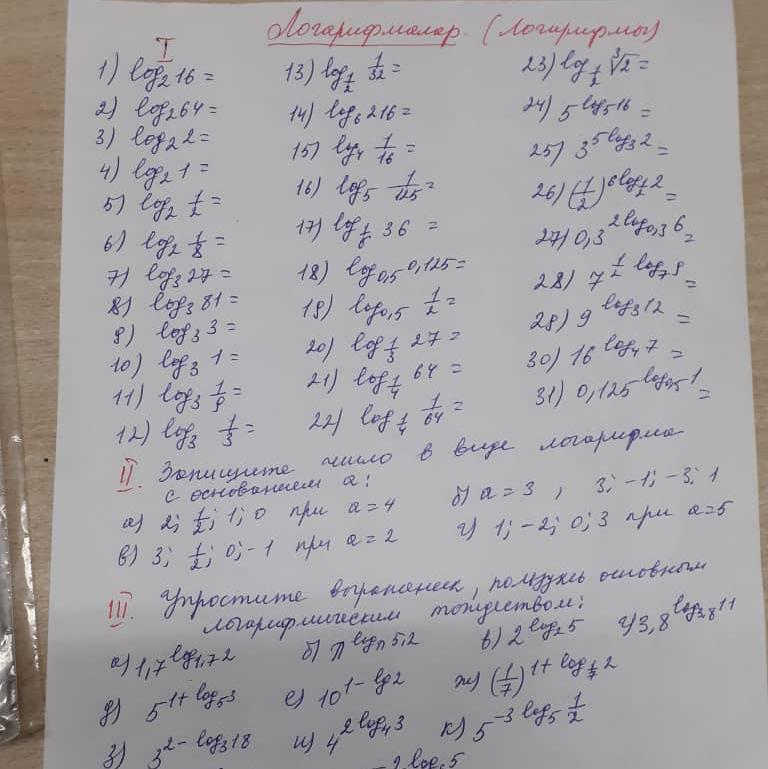 Логарифмалар. (Логарифмы)
I
1) log₂16 =
2) log₂64 =
3) log₂2 =
4) log₂1 =
5) log₂ 1/2 =
6) log₂ 1/8 =
7) log₃27 =
8) log₃81 =
9) log₃3 =
10) log₃1 =
11) log₃ 1/9 =
12) log₃ 1/3 =
13) log_{1/2} 1/32 =
14) log₆216 =
15) log₄ 1/16 =
16) log₅ 1/125 =
17) log_{1/6} 36 =
18) log_{0,5} 0,125 =
19) log_{0,5} 1/2 =
20) log_{1/3} 27 =
21) log_{1/4} 64 =
22) log_{1/4} 1/64 =
23) log_{1/2} ∛2 =
24) 5^{log₅16} =
25) 3^{5log₃2} =
26) (1/2)^{6log_{1/2}2} =
27) 0,3^{2log_{0,3}6} =
28) 7^{1/2 log₇9} =
29) 9^{log₃12} =
30) 16^{log₄7} =
31) 0,125^{log_{0,5}1} =
II. Запишите число в виде логарифма
с основанием a:
а) 2; 1/2; 1; 0 при a = 4 б) a = 3, 3; -1; -3; 1
в) 3; 1/2; 0; -1 при a = 2 г) 1; -2; 0; 3 при a = 5
III. Упростите выражения, пользуясь основным
логарифмическим тождеством:
а) 1,7^{log_{1,7}2} б) π^{log_π 5,2} в) 2^{log₂5} г) 3,8^{log_{3,8}11}
д) 5^{1+log₅3} е) 10^{1-lg2} ж) (1/7)^{1+log_{1/7}2}
з) 3^{2-log₃18} и) 4^{2log₄3} к) 5^{-3log₅ 1/2}